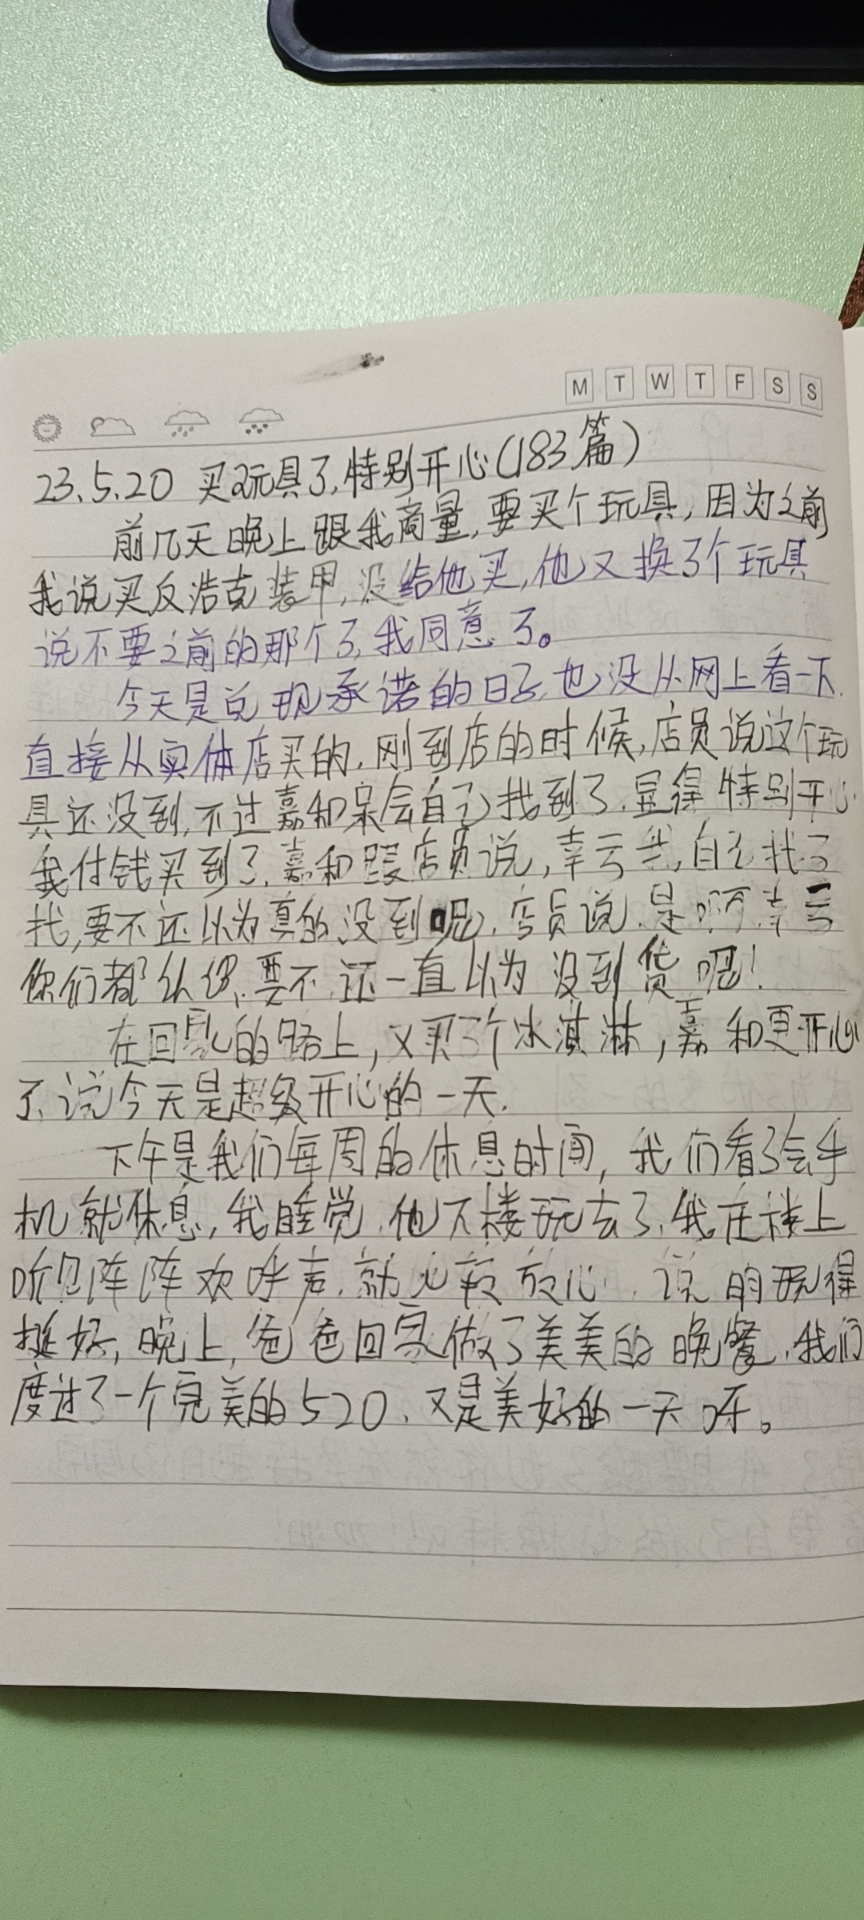 M T W T F S S
23.5.20 买玩具了,特别开心(183篇)
前几天晚上跟我商量,要买个玩具,因为之前
我说买反浩克装甲,没给他买,他又换了个玩具
说不要之前的那个了,我同意了。
今天是兑现承诺的日子,也没从网上看一下,
直接从实体店买的,刚到店的时候,店员说这个玩
具还没到,不过嘉和呆会自己找到了,显得特别开心
我付钱买到了,嘉和跟店员说,幸亏我,自己找了
找,要不还以为真的没到呢,店员说,是啊幸亏
你们都认得,要不还一直以为没到货呢!
在回家的路上,又买了个冰淇淋,嘉和更开心
了,说今天是超级开心的一天.
下午是我们每周的休息时间,我们看了会手
机就休息,我睡觉,他下楼玩去了,我在楼上
听见阵阵欢呼声,就比较放心,说明玩得
挺好,晚上,爸爸回家做了美美的晚餐,我们
度过了一个完美的520,又是美好的一天呀。